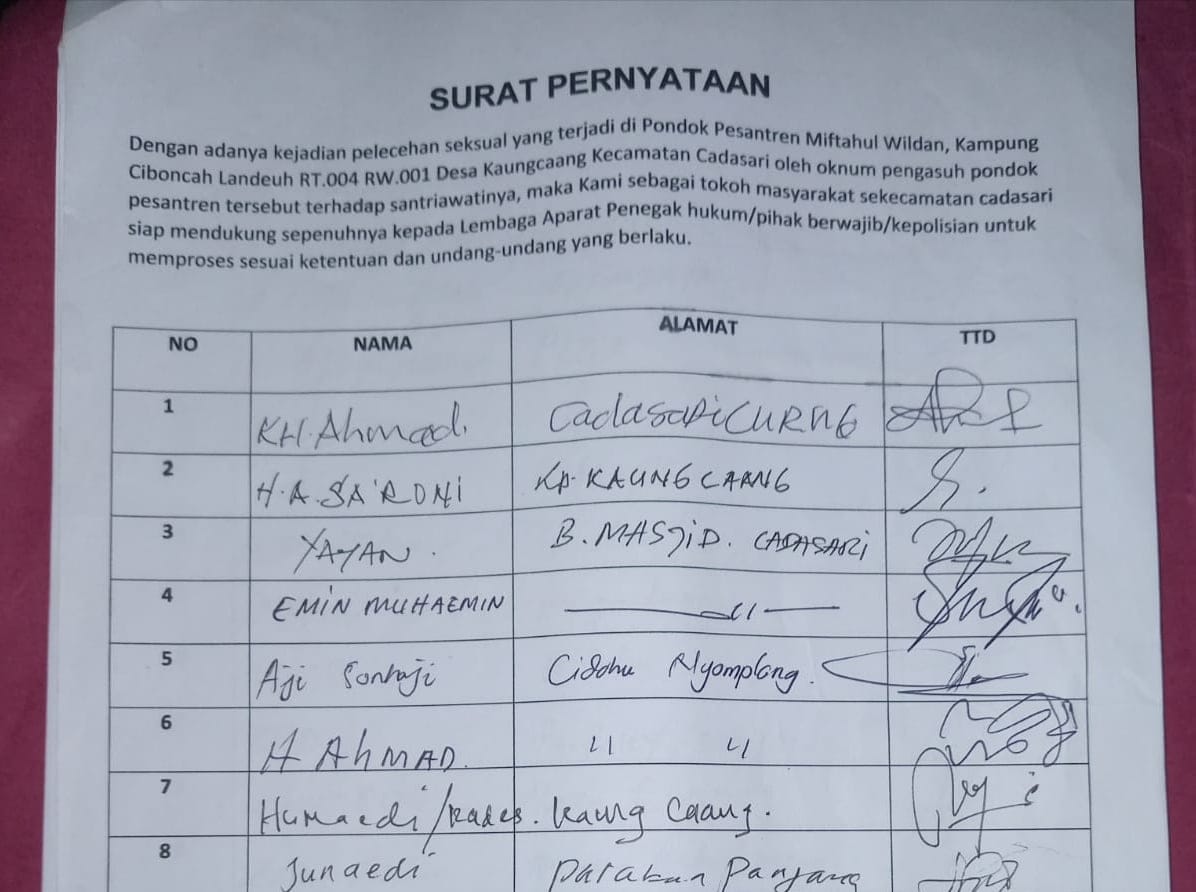 SURAT PERNYATAAN
Dengan adanya kejadian pelecehan seksual yang terjadi di Pondok Pesantren Miftahul Wildan, Kampung
Ciboncah Landeuh RT.004 RW.001 Desa Kaungcaang Kecamatan Cadasari oleh oknum pengasuh pondok
pesantren tersebut terhadap santriawatinya, maka Kami sebagai tokoh masyarakat sekecamatan cadasari
siap mendukung sepenuhnya kepada Lembaga Aparat Penegak hukum/pihak berwajib/kepolisian untuk
memproses sesuai ketentuan dan undang-undang yang berlaku.
NO NAMA ALAMAT TTD
1 KH. Ahmad. Cadasari
2 H.A. SA'RONi Kp. KAUNG CAANG
3 YAYAN. B. MASJiD. CADASARi
4 EMiN MUHAEMIN 〃
5 Aji Sonhaji Nyomplong.
6 H AHMAD. 〃 〃
7 Humaedi/kades. kaung Caang.
8 Junaedi Parakan Panjang